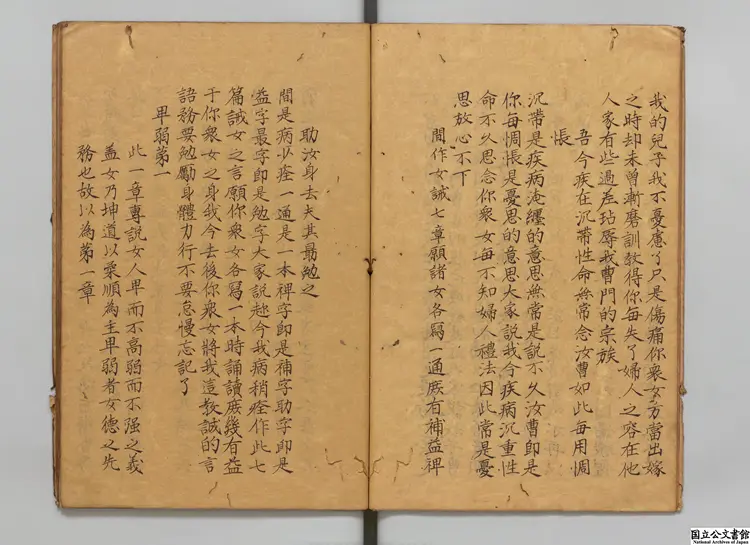 我的兒子我不憂慮了只是傷痛你衆女方當出嫁
之時却未曾漸磨訓教得你每失了婦人之容在他
人家有些過差玷辱我曹門的宗族
吾今疾在沉滯性命無常念汝曹如此每用惆
悵
沉滯是疾病淹纏的意思無常是說不久汝曹即是
你每惆悵是憂思的意思大家說我今疾病沉重性
命不久思念你衆女每不知婦人禮法因此常是憂
思放心不下
間作女誡七章願諸女各寫一通庶有補益裨
助汝身去矣其勗勉之
間是病少痊一通是一本裨字即是補字助字即是
益字最字即是勉字大家說趂今我病稍痊作此七
篇誡女之言願你衆女各寫一本時誦讀庶幾有益
于你衆女之身我今去後你衆女將我這教誡的言
語務要勉勵身體力行不要怠慢忘記了
卑弱第一
此一章專說女人卑而不高弱而不强之義
盖女乃坤道以柔順為主卑弱者女德之先
務也故以為第一章
国立公文書館
National Archives of Japan